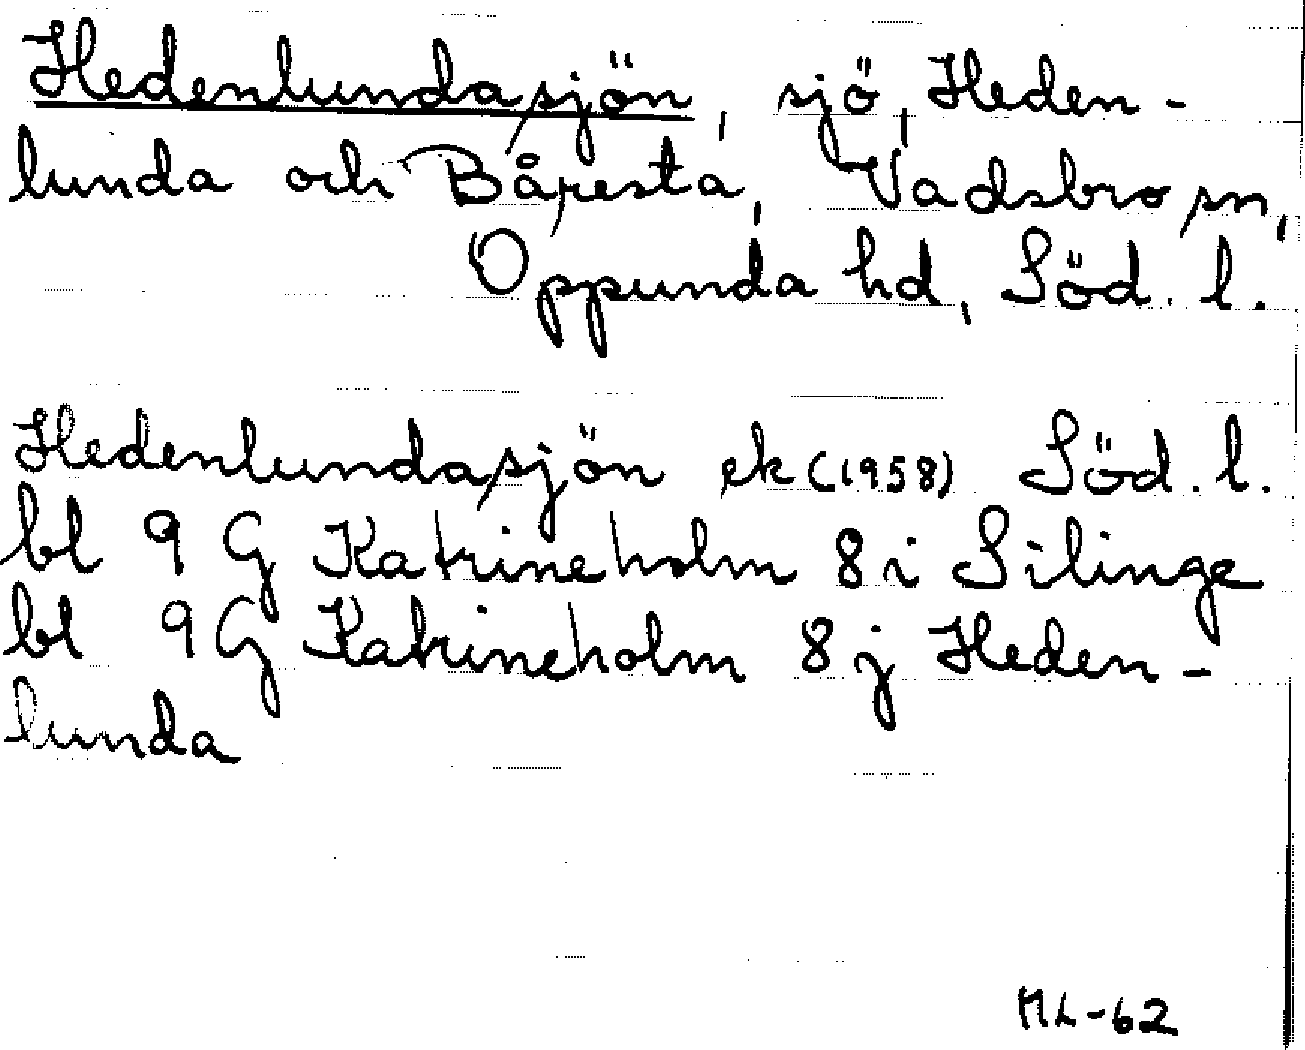 Hedenlundasjön, sjö, Heden-
lunda och Båresta, Vadsbro sn,
Oppunda hd, Söd. l.
Hedenlundasjön ek (1958) Söd. l.
bl 9 G Katrineholm 8 i Silinge
bl 9 G Katrineholm 8 j Heden-
lunda
ML-62